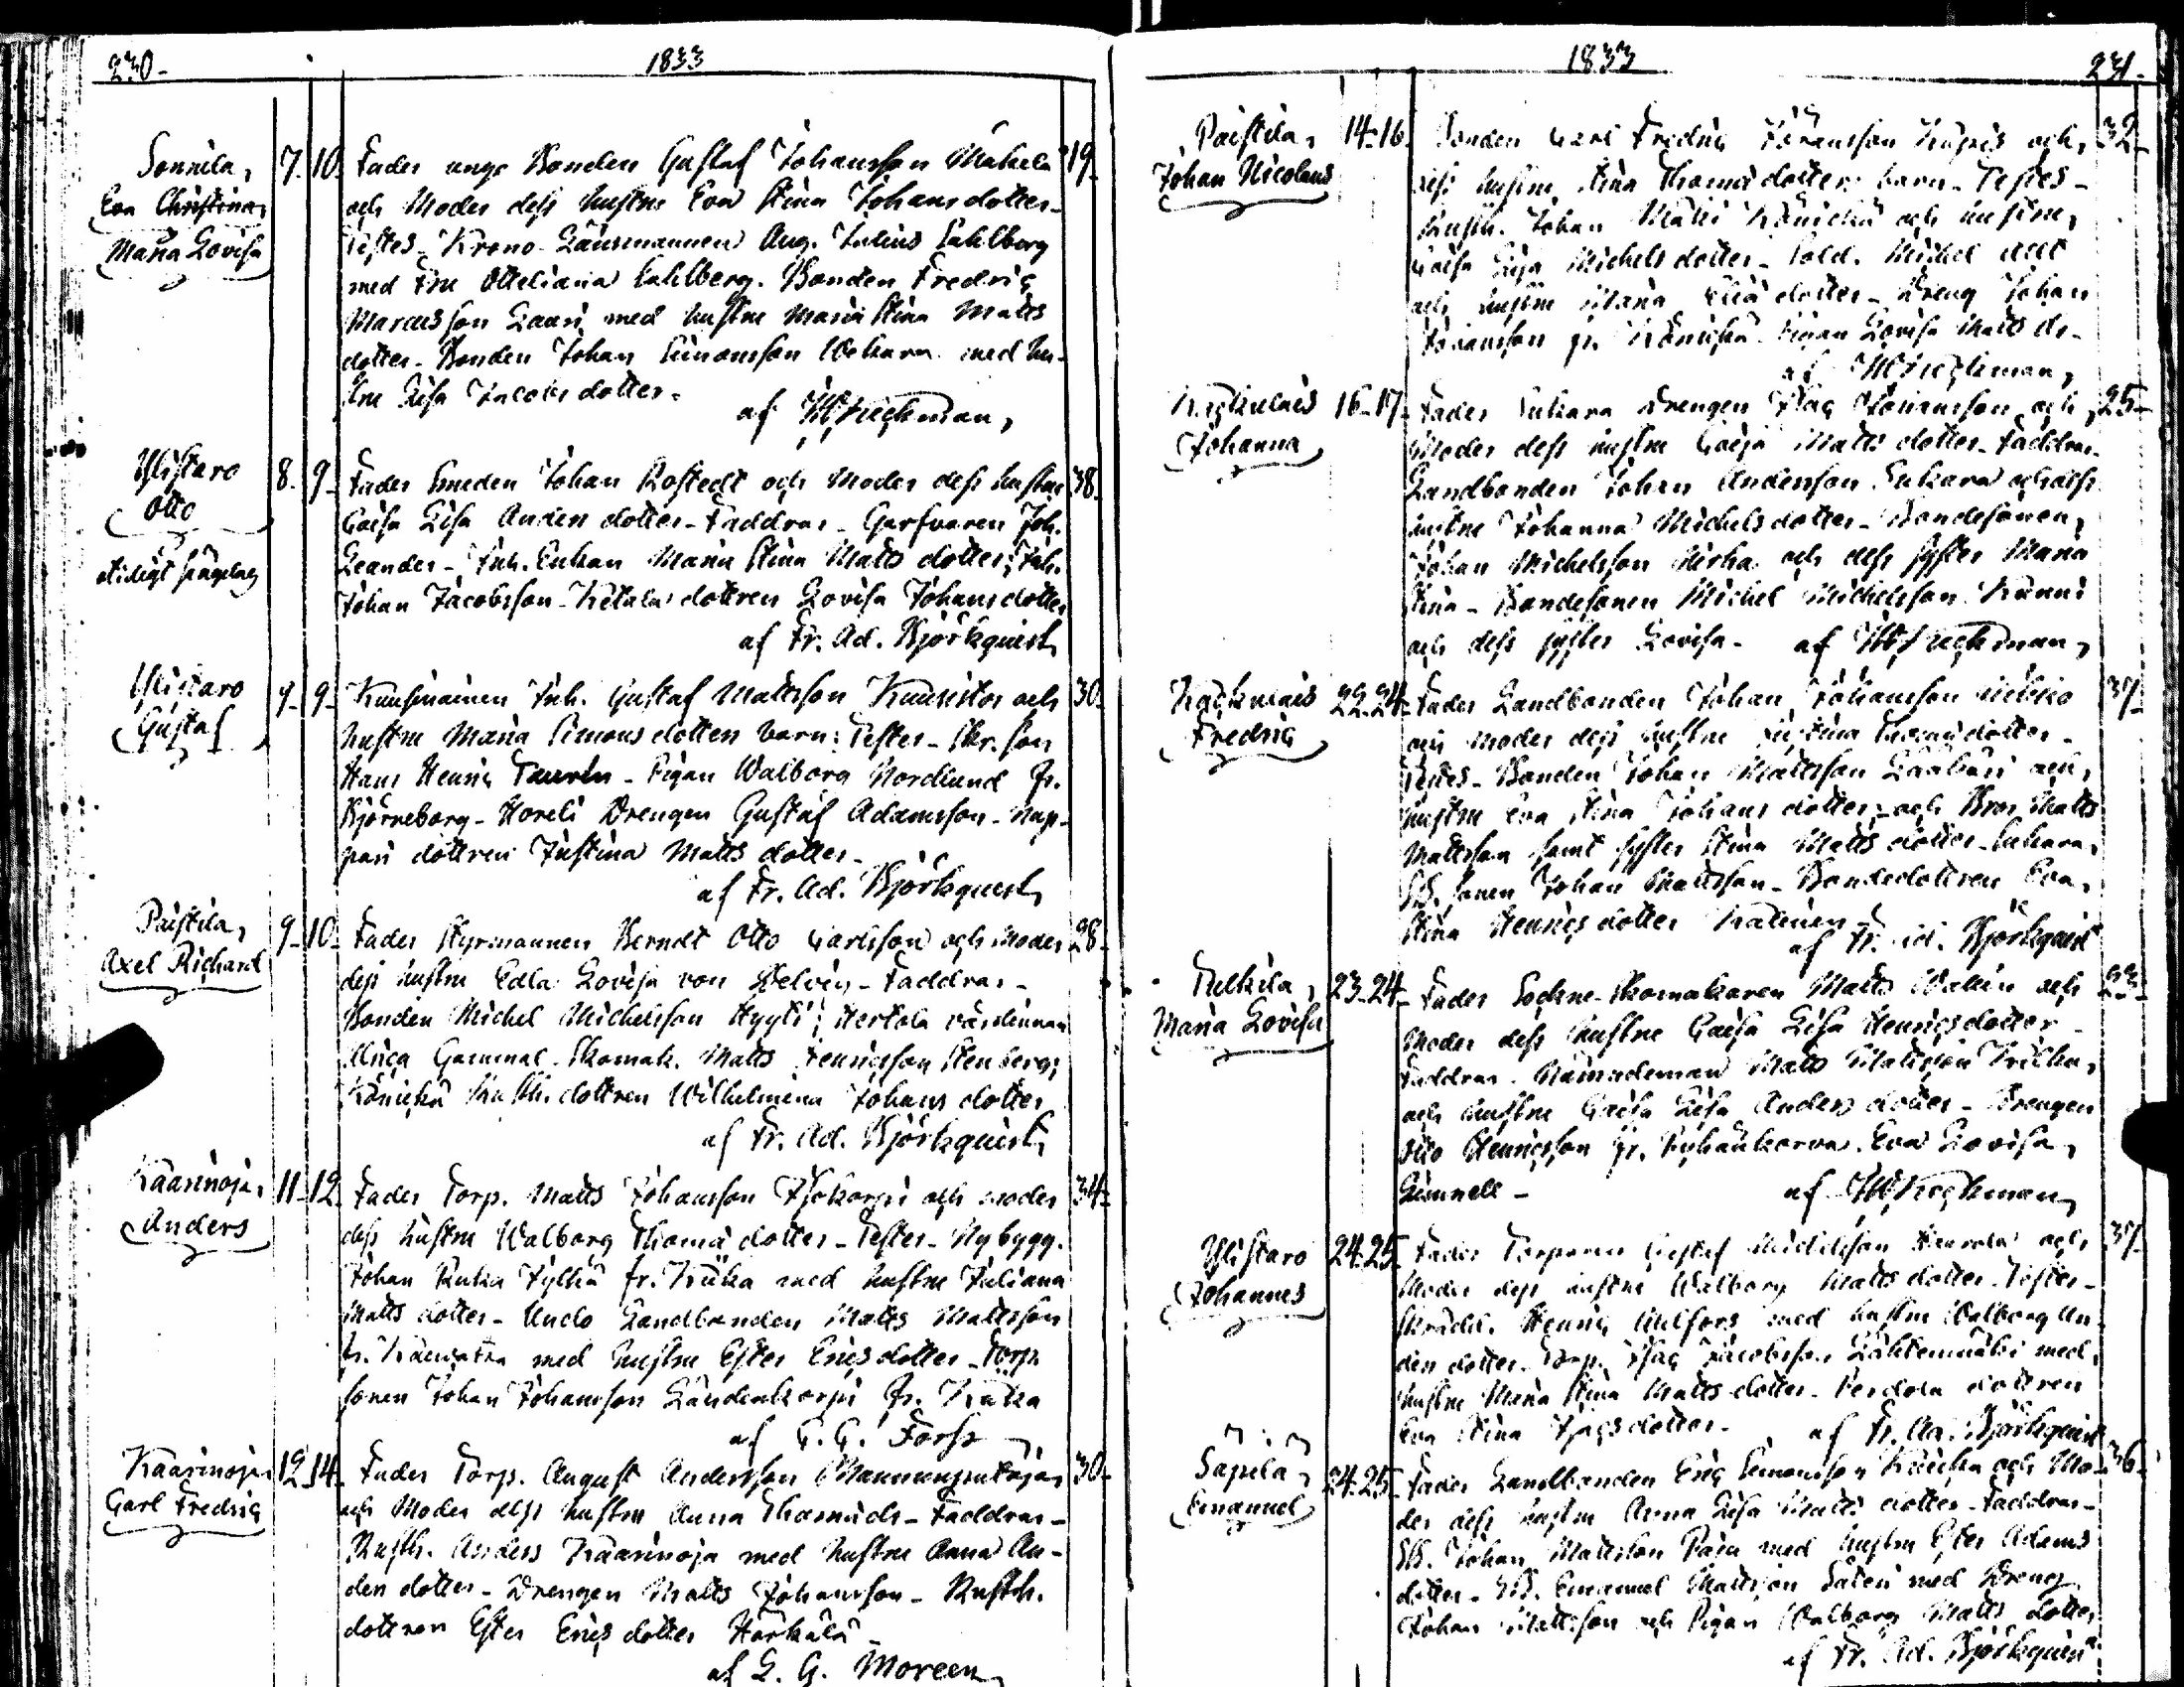 230-
1833
Sonnila,
Eva Christina,
Maria Lovisa
7. 10. Fader unge Bonden Gustaf Johansson Mäkelä 19.
och Moder dess hustru Eva Stina Johansdotter-
Testes- Krono-Länsmannen Aug. Julius Sahlberg
med Fru Otteliana Sahlberg. Bonden Fredric
Marcusson Lauri med hustru Maria Stina Matts
dotter- Bonden Johan Simonsson Uckara med hu-
stru Lisa Jacobs dotter-
af
Ylistaro
Otto
otidigt sängelag
8. 9. Fader Smeden Johan Rostedt och Moder dess hustru 38.
Caisa Lisa Anders dotter- Faddrar- Garfvaren Joh.
Leander- Inh. Enkan Maria Stina Matts dotter; Inh.
Johan Jacobsson- Ketala dottren Lovisa Johans dotter
af Fr. Ad. Björkquist
Ylistaro
Gustaf
9. 9. Kuusmainen Inh. Gustaf Mattsson Kuusistos och 30.
hustru Maria Simons dotters barn: Testes- Skr. son
Hans Henric Taurén- Pigan Walborg Nordlund fr.
Björneborg- Horeli Drengen Gustaf Adamsson- Nap-
pari dottren Justina Matts dotter-
af Fr. Ad. Björkquist
Paistila,
Axel Richard
9. 10. Fader Styrmannen Berndt Otto Carlsson och Moder 28.
dess hustru Edla Lovisa von Delvig- Faddrar-
Bonden Michel Michelsson Hyyti; Hertola värdinnan
Ulrica Gammal- Skomak. Matts Henricsson Stenberg;
Könickä Rusth. dottren Wilhelmina Johans dotter
af Fr. Ad. Björkquist
Kaarinoja,
Anders
11. 12. Fader Torp. Matts Johansson Isokorpi och moder 34.
dess hustru Walborg Thomä dotter- Testes- Nybygg.
Johan Kuka Jylhä fr. Kuka med hustru Juliana
Matts dotter- Undo Landbonden Matts Mattsson
fr. med hustru Ester Erics dotter- Torp.
sonen Johan Johansson fr.
af G. G. Forss
Kaarinoja
Carl Fredric
12. 14. Fader Torp. August Andersson 30.
och Moder dess hustru Anna Thomä dr- Faddrar-
Rusth. Anders Kaarinoja med hustru Anna An-
ders dotter- Drengen Matts Johansson- Rusth.
dottren Ester Erics dotter Härkälä-
af L. G. Moreen
1833
231-
Paistila,
Johan Nicolaus
14. 16. Bonden Carl Fredric Göransson och 32.
dess hustru Stina Thomä dotters barn- Testes-
Rusth. Johan Matti Könickä och hustru
Caisa Lisa Michels dotter- Sold. Michel
och hustru Maria dotter- Dreng Johan
Johansson fr. Könickä- Pigan Lovisa Matts dr-
af
Johanna
16. 17. Fader Sukara Drengen Isac Johansson och 25.
Moder dess hustru Caisa Matts dotter- Faddrar-
Landbonden Johan Andersson Sukara och dess
hustru Johanna Michels dotter- Bondesonen,
Johan Michelsson och dess syster Maria
Stina- Bondesonen Michel Michelsson
och dess syster Lovisa- af
Fredric
22. 24. Fader Landbonden Johan Johansson 37.
och Moder dess hustru Thomä dotter-
Testes- Bonden Johan Mattsson och
hustru Eva Stina Johans dotter; och Bror Matts
Mattsson samt syster Stina Matts dotter- Sukara,
sonen Johan Mattsson- Bondedottren Eva
Stina Henrics dotter
af Fr. Ad. Björkquist
Maria Lovisa
23. 24. Fader Sockne-Skomakaren Matts Wallin och 23.
Moder dess hustru Caisa Lisa Henrics dotter-
Faddrar- Nämndeman Matts Mattsson
och hustru Caisa Lisa Anders dotter- Drengen
Otto Henricsson fr. Eva Lovisa
af
Ylistaro
Johannes
24. 25. Fader Torparen Gustaf Michelsson och 37.
Moder dess hustru Walborg Matts dotter- Testes-
Skrädd. Henric Ulfors med hustru Walborg An-
ders dotter- Torp. Isac Jacobsson med
hustru Maria Stina Matts dotter- dottren
Eva Stina Isacs dotter- af Fr. Ad. Björkquist
Säpilä,
Emanuel
24. 25. Fader Landbonden Eric Simonsson och Mo- 36.
der dess hustru Anna Lisa Matts dotter- Faddrar-
Johan Mattsson med hustru Ester Adams
dotter- Emanuel Mattsson med Dreng
Johan Mattsson och Pigan Walborg Matts dotter
af Fr. Ad. Björkquist